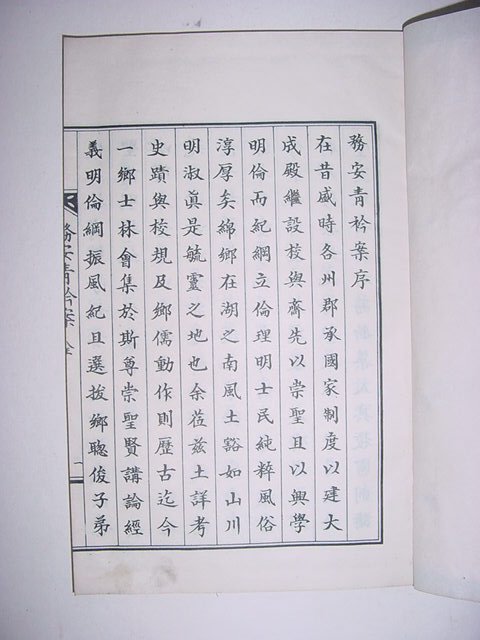 務安青衿案序
在昔盛時各州郡承國家制度以建大
成殿繼設校與齋先以崇聖且以興學
明倫而紀綱立倫理明士民純粹風俗
淳厚矣綿鄉在湖之南風土豁如山川
明淑眞是毓靈之地也余莅茲土詳考
史蹟與校規及鄉儒動作則歷古迄今
一鄉士林會集於斯尊崇聖賢講論經
義明倫綱振風紀且選拔鄉聰俊子弟
務安青衿案